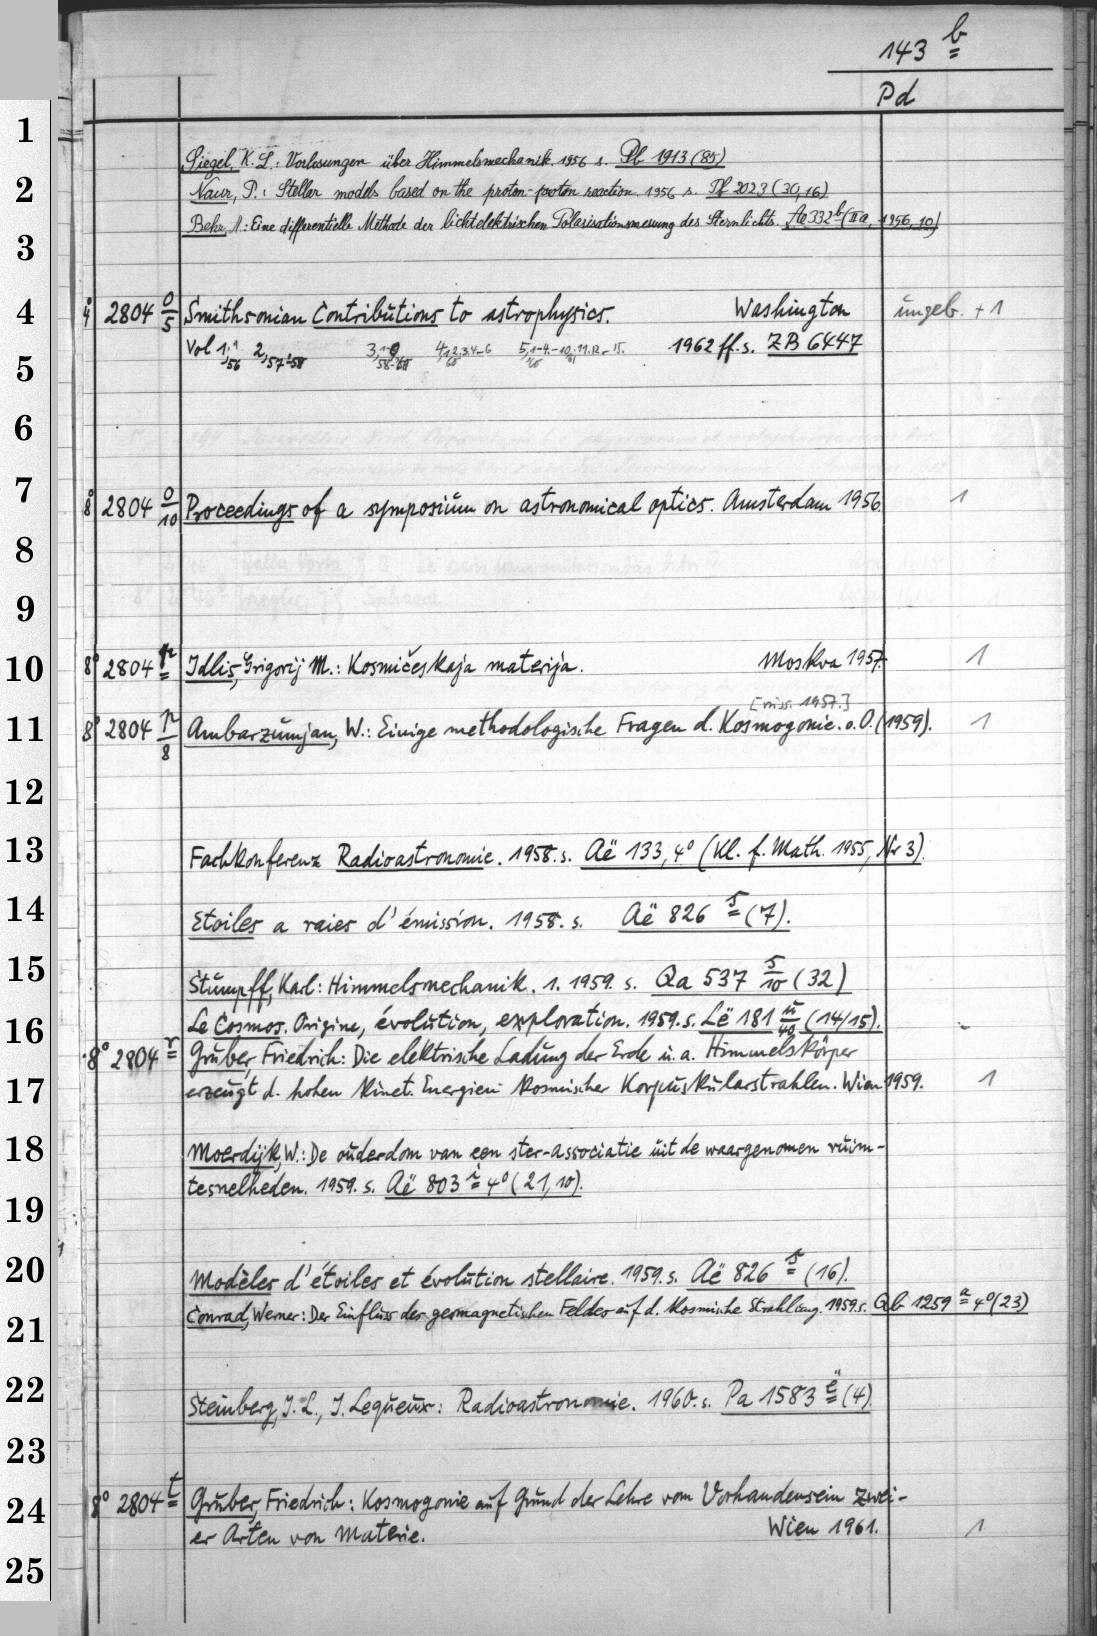 143 b
Pd
1
Siegel, K. L.: Vorlesungen über Himmelsmechanik. 1956 s. Pb 1913 (85)
2
Naur, P.: Stellar models based on the proton-proton reaction. 1956 s. Pf 2023 (30,16)
Behr, A.: Eine differentielle Methode der lichtelektrischen Polarisationsmessung des Sternlichts. Aa 332 b (IIa, 1956, 10)
3
4
4° 2804 o/5 Smithsonian Contributions to astrophysics. Washington ungeb. + 1
Vol 1,1 56 2, 57-58 1962 ff. s. ZB 6447
5
6
7
8° 2804 o/10 Proceedings of a symposium on astronomical optics. Amsterdam 1956. 1
8
9
10
8° 2804 p Idlis, Grigorij M.: Kosmičeskaja materija. Moskva 1957. 1
[miss. 1957.]
11
8° 2804 p/8 Ambarzumjan, W.: Einige methodologische Fragen d. Kosmogonie. o.O. (1959). 1
12
13
Fachkonferenz Radioastronomie. 1958. s. Aë 133, 4° (Kl. f. Math. 1955, Nr 3).
14
Etoiles a raies d'émission. 1958. s. Aë 826 s (7).
15
Stumpff, Karl: Himmelsmechanik. 1. 1959. s. Qa 537 s/10 (32)
16
Le Cosmos. Origine, évolution, exploration. 1959. s. Lë 181 u/40 (14/15).
8° 2804 r Gruber, Friedrich: Die elektrische Ladung der Erde u. a. Himmelskörper
17
erzeugt d. hohen kinet. Energien kosmischer Korpuskularstrahlen. Wien 1959. 1
18
Moerdijk, W.: De ouderdom van een ster-associatie uit de waargenomen ruim-
tesnelheden. 1959. s. Aë 803 i 4° (21, 10).
19
20
Modèles d'étoiles et évolution stellaire. 1959. s. Aë 826 s (16).
Conrad, Werner: Der Einfluss des geomagnetischen Feldes auf d. kosmische Strahlung. 1959. s. Qb 1259 a 4° (23)
21
22
Steinberg, J. L., J. Lequeux: Radioastronomie. 1960. s. Pa 1583 ë (4).
23
24
8° 2804 t Gruber, Friedrich: Kosmogonie auf Grund der Lehre vom Vorhandensein zwei-
er Arten von Materie. Wien 1961. 1
25